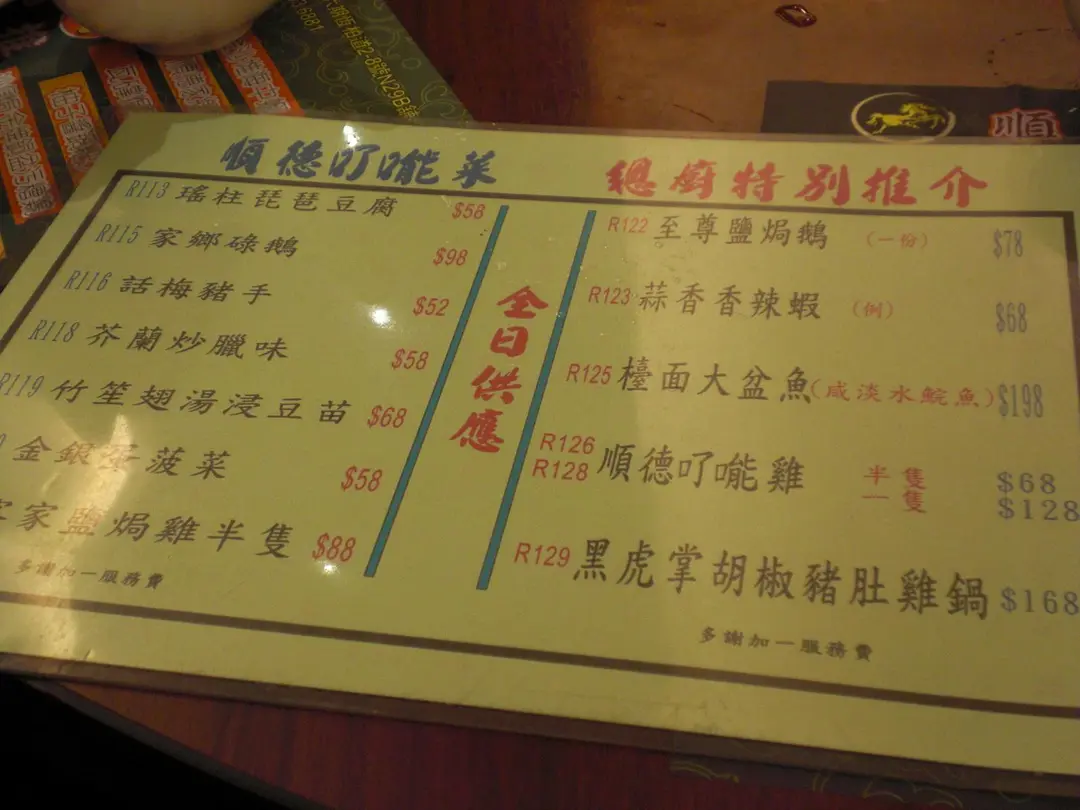 順德叮嚨菜
R113 瑤柱琵琶豆腐 $58
R115 家鄉碌鵝 $98
R116 話梅豬手 $52
R118 芥蘭炒臘味 $58
R119 竹笙翅湯浸豆苗 $68
金銀蛋菠菜 $58
客家鹽焗雞半隻 $88
多謝加一服務費
全日供應
總廚特別推介
R122 至尊鹽焗鵝 (一份) $78
R123 蒜香香辣蝦 (例) $68
R125 檯面大盆魚(咸淡水鯇魚) $198
R126 順德叮嚨雞 半隻 $68
R128 一隻 $128
R129 黑虎掌胡椒豬肚雞鍋 $168
多謝加一服務費
順